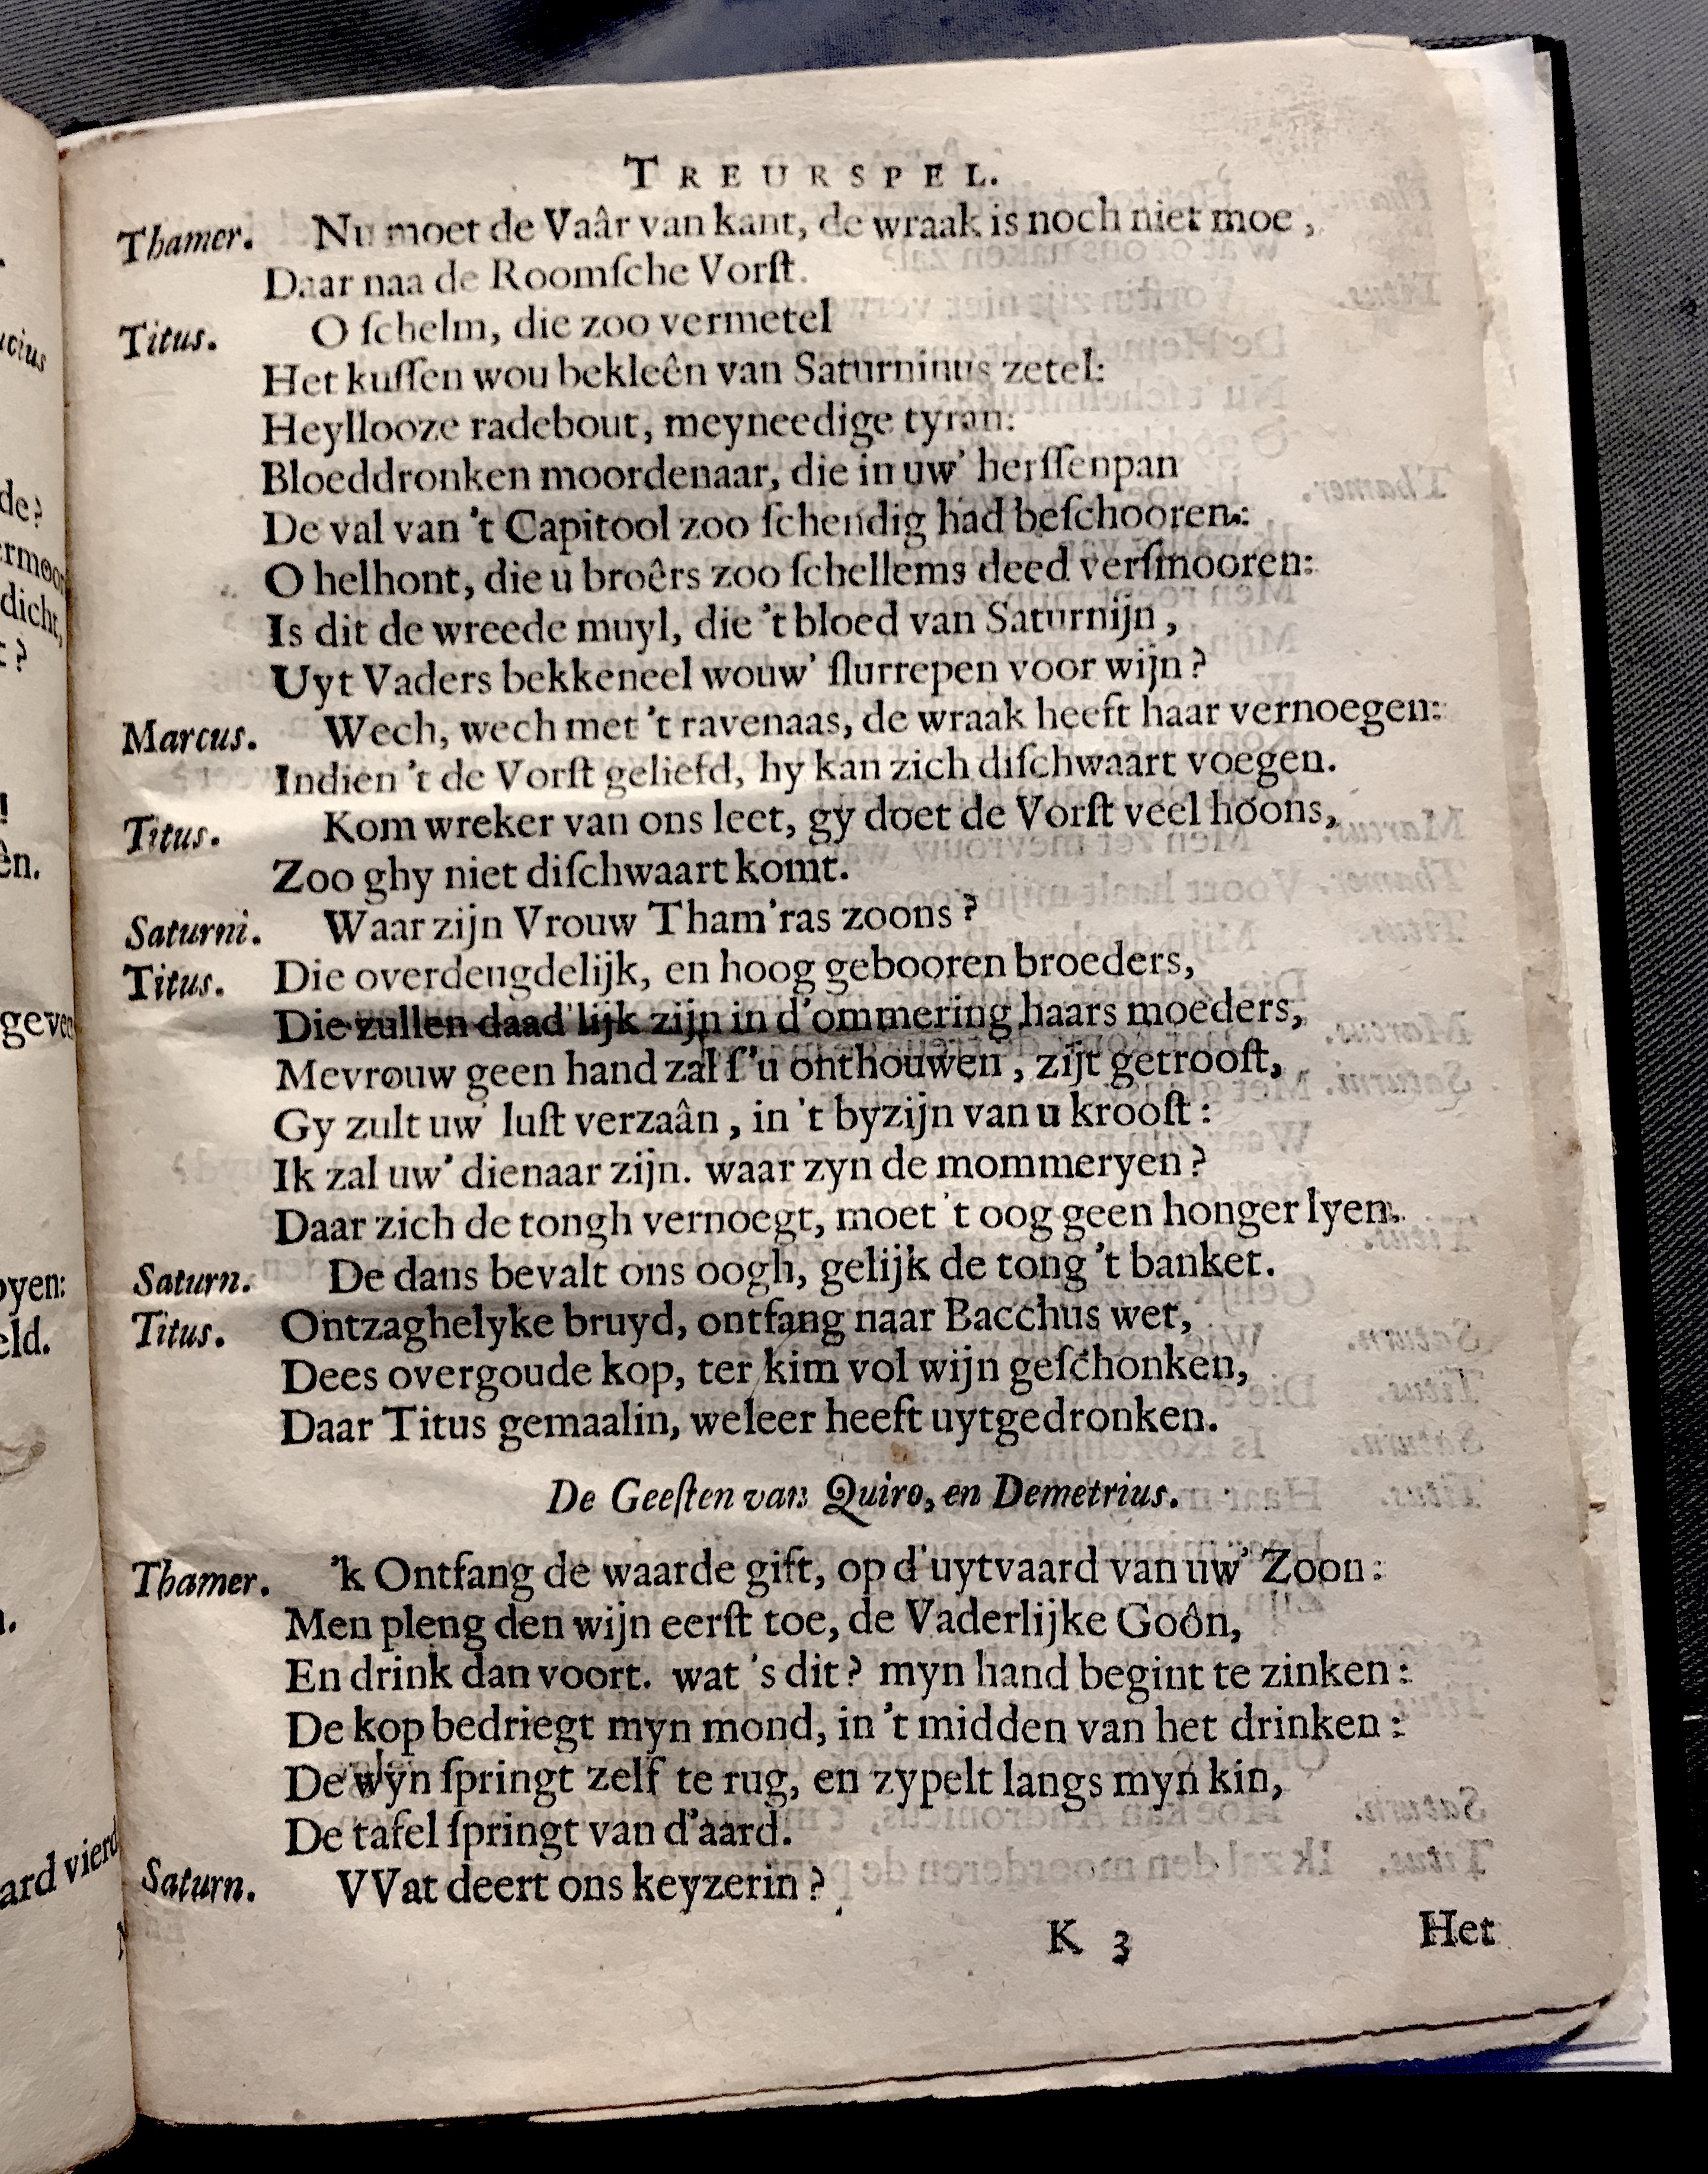 TREURSPEL.
Thamer. Nu moet de Vaâr van kant, de wraak is noch niet moe,
Daar naa de Roomſche Vorſt.
Titus. O ſchelm, die zoo vermetel
Het kuſſen wou bekleên van Saturninus zetel:
Heyllooze radebout, meyneedige tyran:
Bloeddronken moordenaar, die in uw' herſſenpan
De val van 't Capitool zoo ſchendig had beſchooren:
O helhont, die u broêrs zoo ſchellems deed verſmooren:
Is dit de wreede muyl, die 't bloed van Saturnijn,
Uyt Vaders bekkeneel wouw' ſlurrepen voor wijn?
Marcus. Wech, wech met 't ravenaas, de wraak heeft haar vernoegen:
Indien 't de Vorſt geliefd, hy kan zich diſchwaart voegen.
Titus. Kom wreker van ons leet, gy doet de Vorſt veel hoons,
Zoo ghy niet diſchwaart komt.
Saturni. Waar zijn Vrouw Tham'ras zoons?
Titus. Die overdeugdelijk, en hoog gebooren broeders,
Die zullen daad'lijk zijn in d'ommering haars moeders,
Mevrouw geen hand zal ſ'u onthouwen, zijt getrooſt,
Gy zult uw' luſt verzaân, in 't byzijn van u krooſt:
Ik zal uw' dienaar zijn. waar zyn de mommeryen?
Daar zich de tongh vernoegt, moet 't oog geen honger lyen.
Saturn. De dans bevalt ons oogh, gelijk de tong 't banket.
Titus. Ontzaghelyke bruyd, ontfang naar Bacchus wet,
Dees overgoude kop, ter kim vol wijn geſchonken,
Daar Titus gemaalin, weleer heeft uytgedronken.
De Geeſten van Quiro, en Demetrius.
Thamer. 'k Ontfang de waarde gift, op d'uytvaard van uw' Zoon:
Men pleng den wijn eerſt toe, de Vaderlijke Goôn,
En drink dan voort. wat 's dit? myn hand begint te zinken:
De kop bedriegt myn mond, in 't midden van het drinken:
De wyn ſpringt zelf te rug, en zypelt langs myn kin,
De tafel ſpringt van d'aard.
Saturn. VVat deert ons keyzerin?
K 3 Het